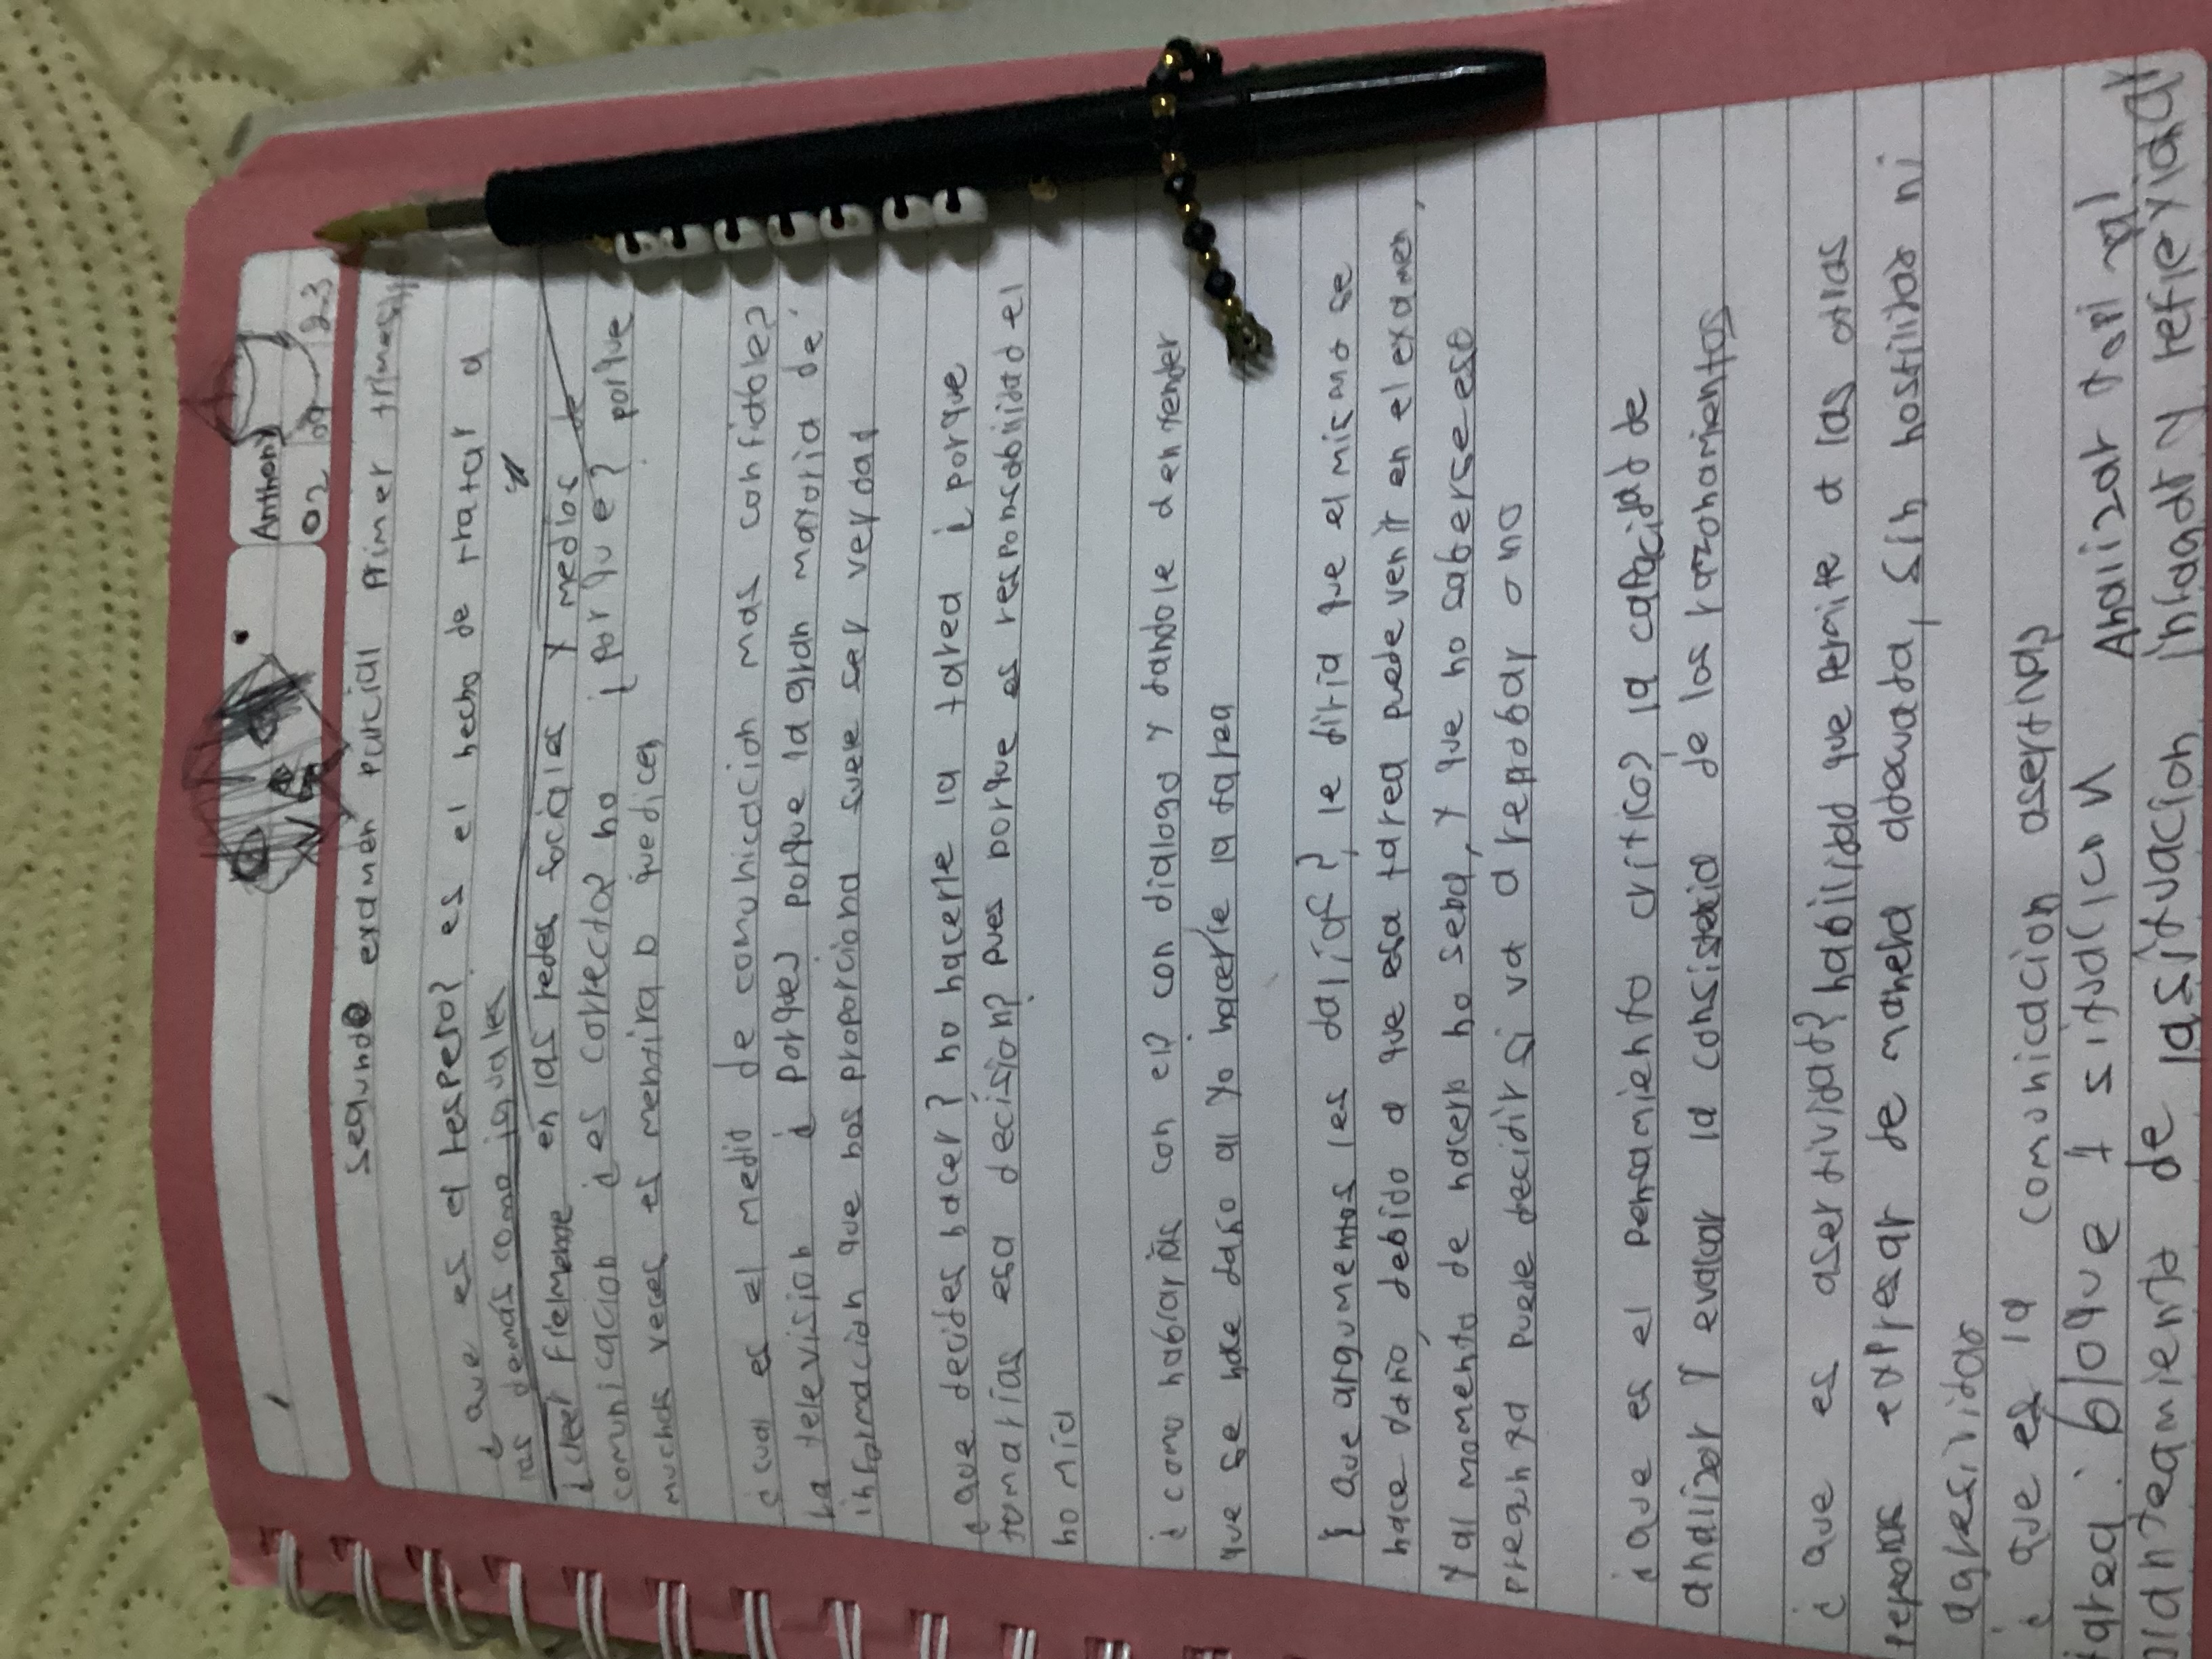 Anthony
02 09 23
segundo examen parcial primer trimestr
¿ que es el respeto? es el hecho de tratar a
las demás como iguales y
¿ creer fielmente en las redes sociales y medios de
comunicacion ¿ es correcto? no ¿ por que? porque
muchas veces es mentira o que dicen
¿ cual es el medio de comunicacion mas confiable?
La television ¿ porque? porque la gran mayoria de
informacion que nos proporciona suele ser verdad
¿ que decides hacer? no hacerle la tarea ¿ porque
tomarias esa decision? pues porque es responsabilidad el
no mia
¿ como hablarias con el? con dialogo y dandole a entender
que se hace daño al yo hacerle la tarea
¿ que argumentos les darias? le diria que el mismo se
hace daño, debido a que esa tarea puede venir en el examen,
y al momento de hacerlo no sepa, y que no saberse eso
pregunta puede decidir si va a reprobar o no
¿ que es el pensamiento critico? la capacidad de
analizar y evaluar la consistencia de los razonamientos
¿ que es asertividad? habilidad que permite a las otras
expresar de manera adecuada, sin hostilidad ni
agresividad
¿ que es la comunicacion asertiva
tarea: bloque 1 situacion Analizar
planteamiento de la situacion indagar y reflexionar